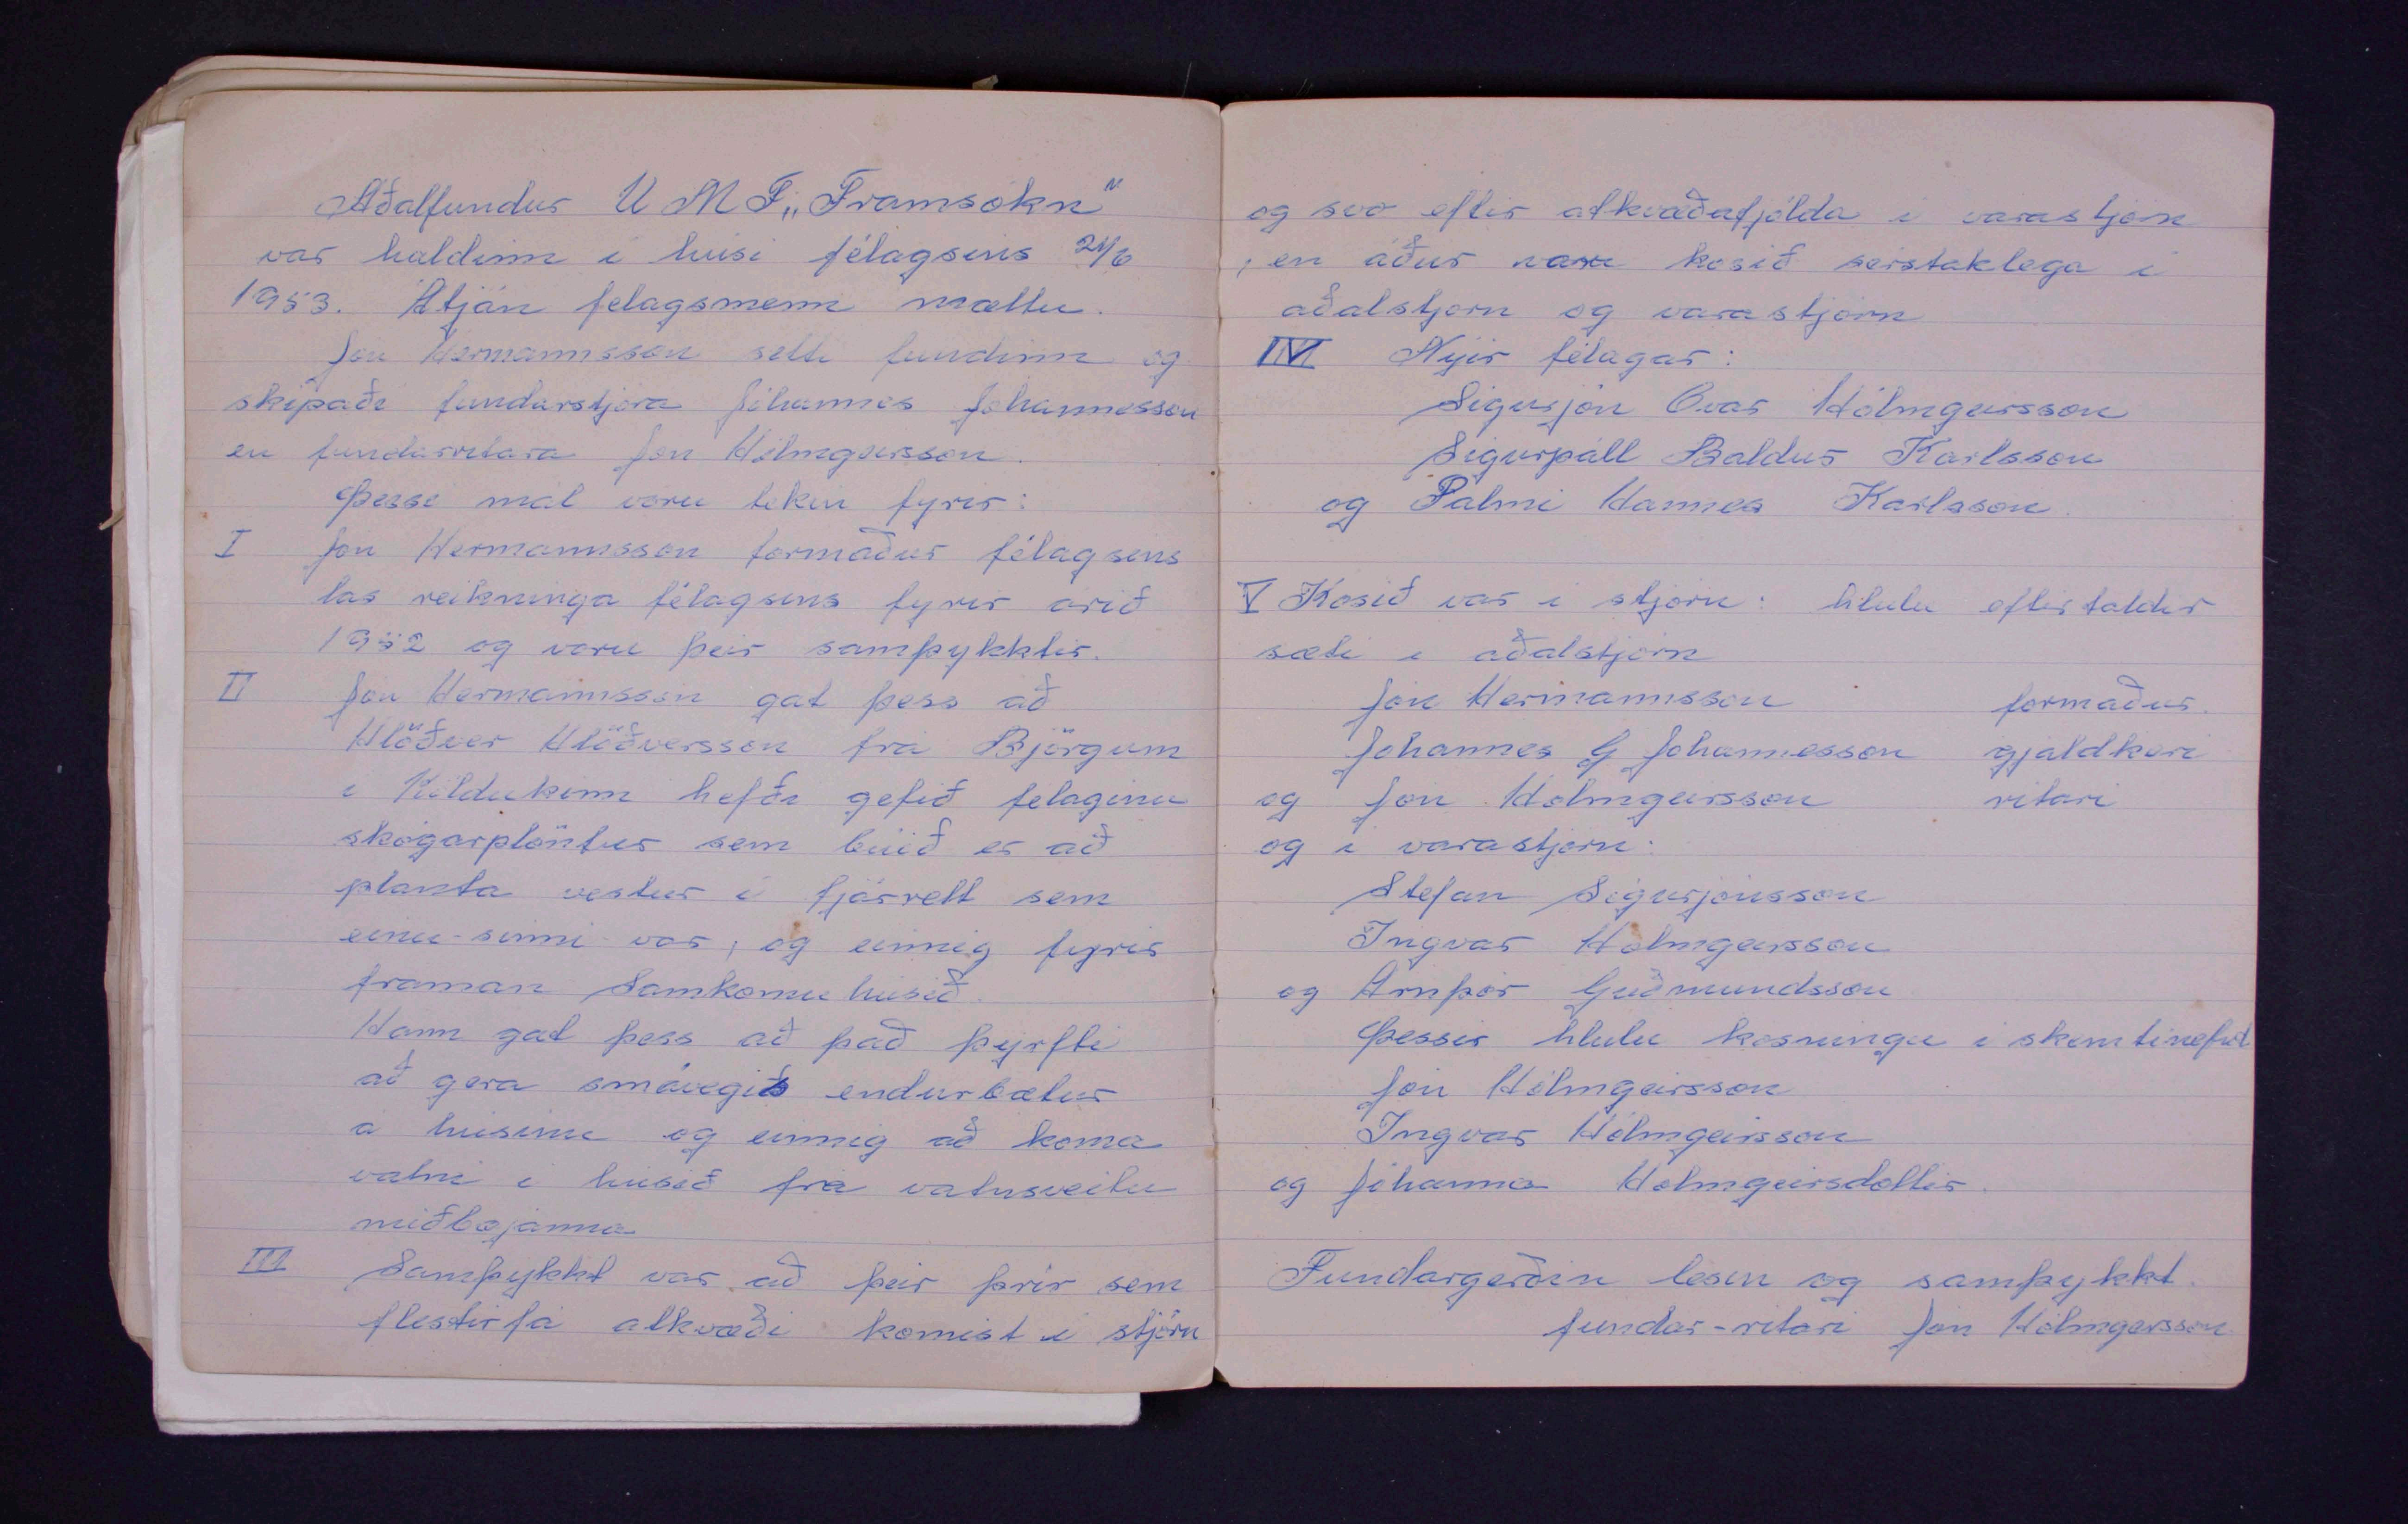 Aðalfundur U M F „Framsókn"
var haldinn i húsi félagsins 21/6
1953. Átján felagsmenn mættu.
Jón Hermannsson setti fundinn og
skipaði fundarstjóra Jóhannes Jóhannesson
en fundarritara Jón Hólmgeirsson.
Þessi mál voru tekin fyrir:
I Jón Hermannsson formaður félagsins
las reikninga félagsins fyrir árið
1952 og voru þeir samþykktir.
II Jón Hermannsson gat þess að
Hlöðver Hlöðversson frá Björgum
i Köldukinn hefði gefið felaginu
skógarplöntur sem búið er að
planta vestur i fjárrétt sem
einu-sinni var, og einnig fyrir
framan Samkomuhúsið.
Hann gat þess að það þyrfti
að gera smávegis endurbætur
á húsinu og einnig að koma
vatni i húsið frá vatnsveitu
miðbæjanna
III Samþykkt var að þeir þrír sem
flestir fá atkvæði komist i stjórn
og svo eftir atkvæðafjölda i varastjórn
, en áður var kosið serstaklega i
aðalstjorn og varastjórn
IV Nýir félagar:
Sigurjón Ovar Hólmgeirsson
Sigurpáll Baldur Karlsson
og Pálmi Hannes Karlsson.
V Kosið var i stjórn: hlutu eftirtaldir
sæti i aðalstjórn
Jón Hermannsson formaður.
Jóhannes G Jóhannesson gjaldkeri
og Jón Hólmgeirsson ritari
og i varastjórn:
Stefan Sigurjónsson
Ingvar Hólmgeirsson
og Arnþór Guðmundsson
Þessir hlutu kosningu i skemtinefnd
Jón Hólmgeirsson
Ingvar Hólmgeirsson
og Jóhanna Hólmgeirsdóttir.
Fundargerðin lesin og samþykkt.
fundar-ritari Jón Hólmgeirsson.